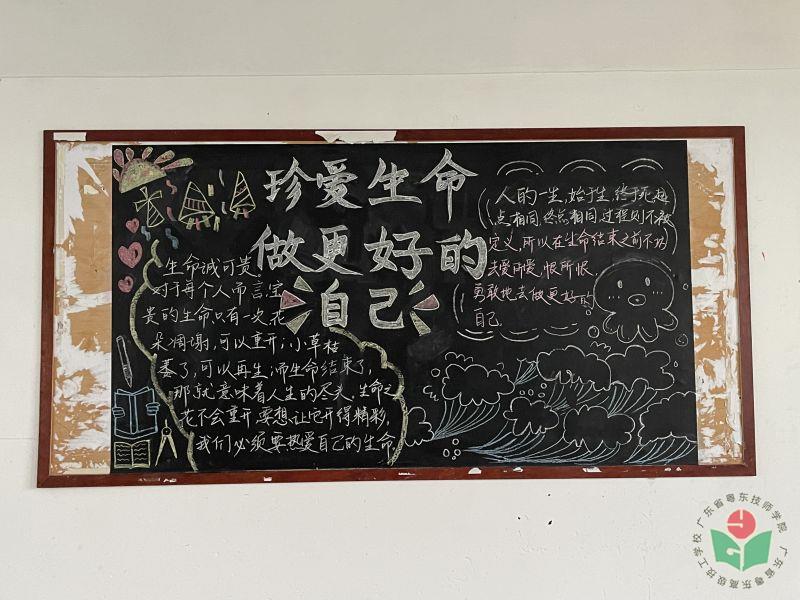 珍爱生命
做更好的
自己
生命诚可贵,
对于每个人而言,宝
贵的生命只有一次,花
朵凋谢,可以重开;小草枯
萎了,可以再生;而生命结束了,
那就意味着人生的尽头,生命之
花不会重开,要想让它开得精彩,
我们必须要热爱自己的生命
人的一生,始于生,终于死,起
点相同,终点相同,过程则不被
定义,所以在生命结束之前不妨
去爱所爱,恨所恨,
勇敢地去做更好的
自己
广东省粤东技师学院
广东省粤东高级技工学校